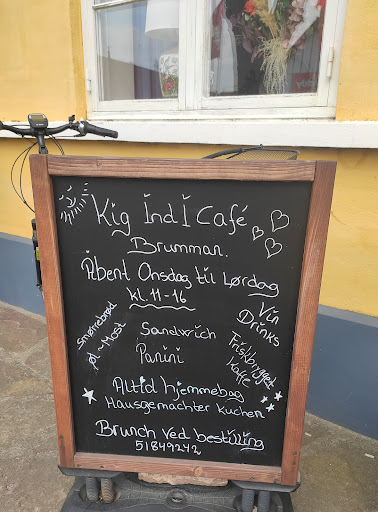 Kig ind i Café
Brumman.
Åbent Onsdag til Lørdag
kl. 11-16
smørrebrød
øl - Most
Sandwich
Panini
Vin
Drinks
Friskbrygget
Kaffe
Altid hjemmebag
Hausgemachter Kuchen
Brunch ved bestilling
51849242